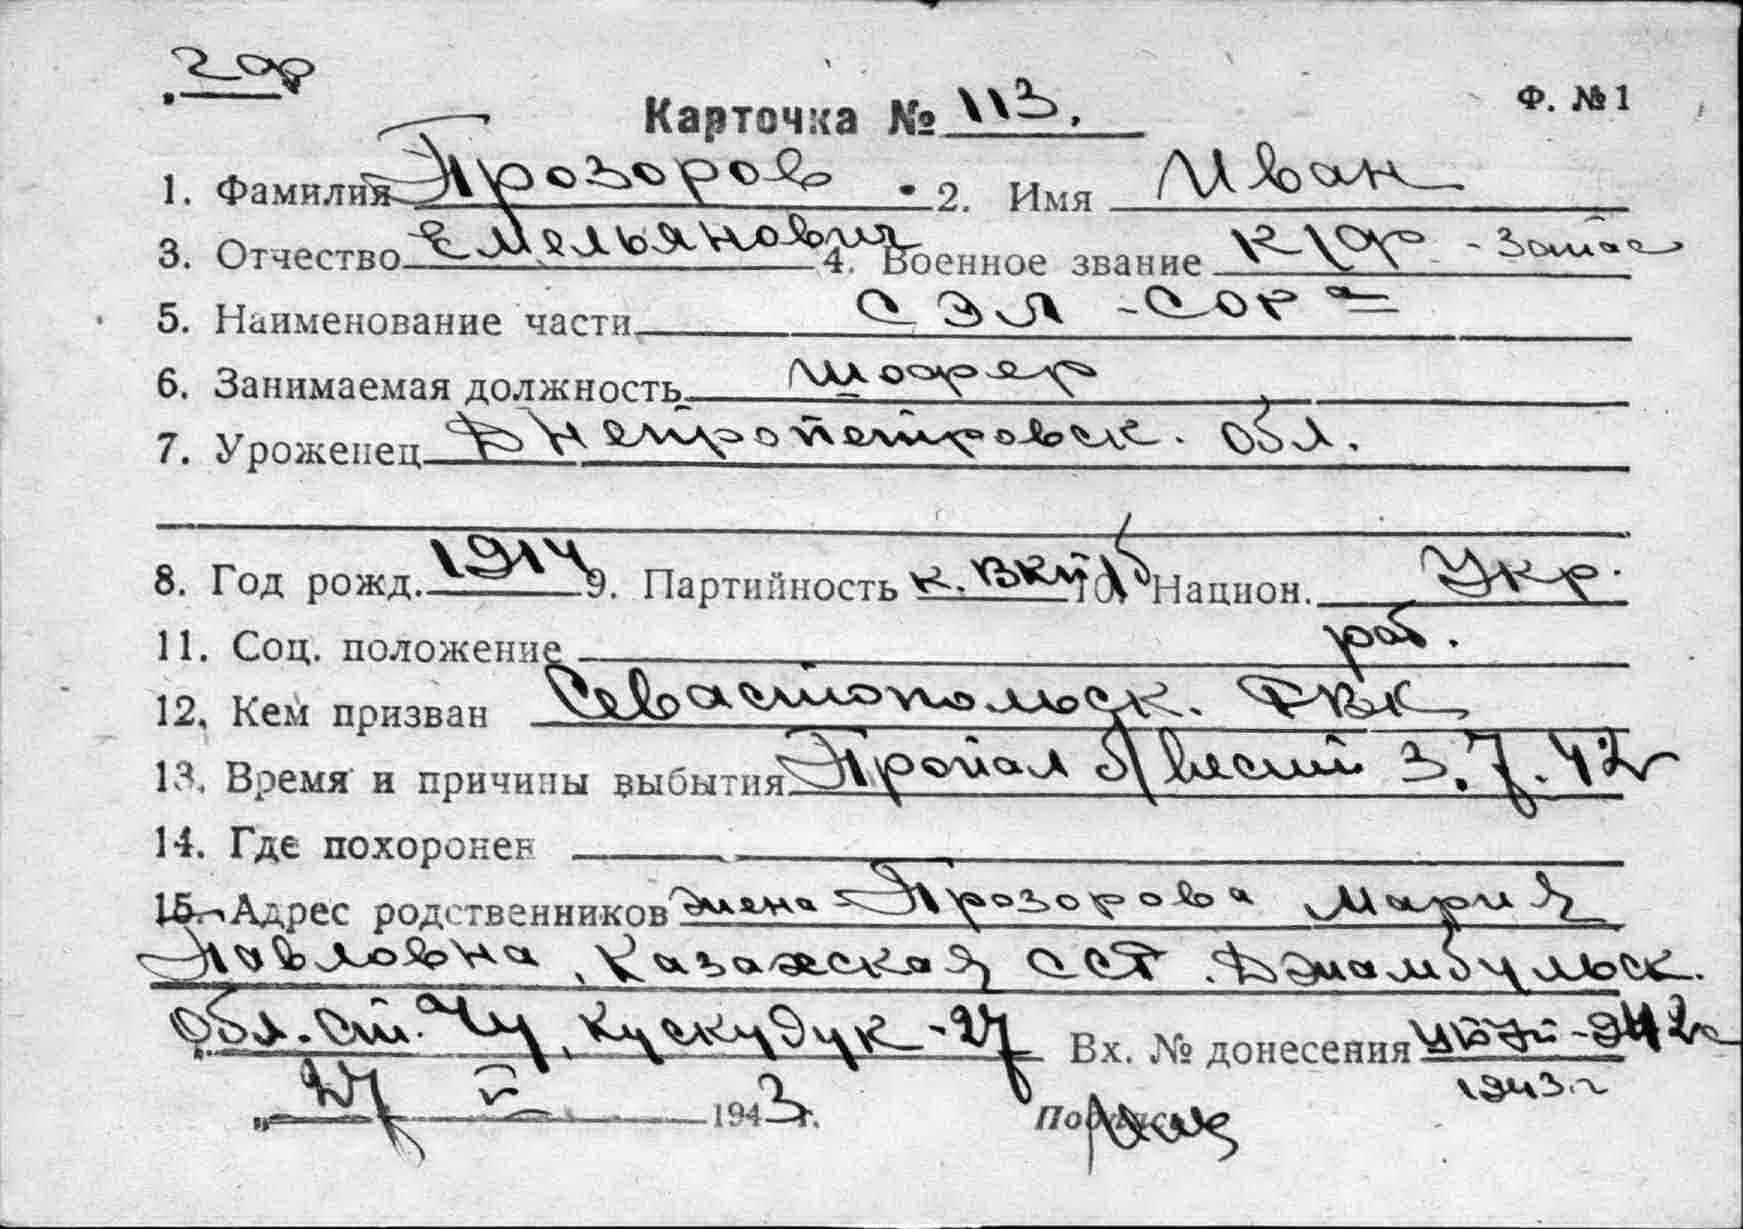 Карточка № 113. Ф. № 1
1. Фамилия Прозоров 2. Имя Иван
3. Отчество Емельянович 4. Военное звание к/ф - запас
5. Наименование части СЭЛ - СОР а
6. Занимаемая должность шофер
7. Уроженец Днепропетровск. обл.
8. Год рожд. 1914 9. Партийность к. ВКП/б 10. Национ. Укр.
11. Соц. положение раб.
12. Кем призван Севастопольск. ГВК
13. Время и причины выбытия Пропал б/вести 3.7.42
14. Где похоронен
15. Адрес родственников жена Прозорова Мария
Павловна, Казахская ССР. Джамбульск.
обл. ст. Чу, Кускудук - 27 Вх. № донесения
1943 г
„ 27 V 1943 г. Подпись